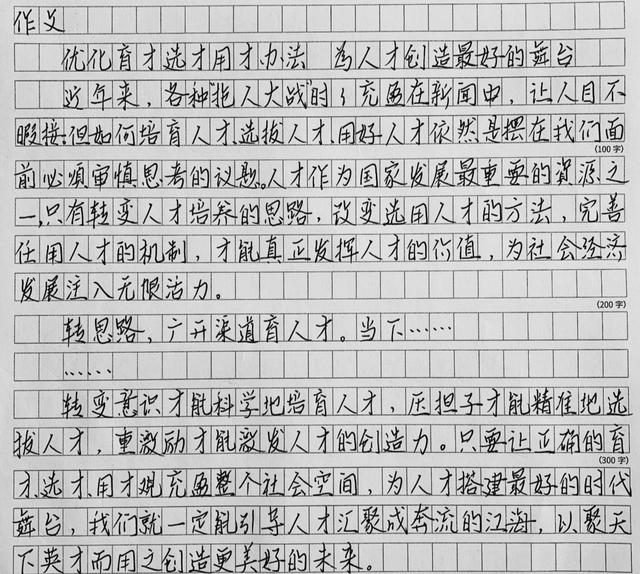 作文
优化育才选才用才办法 为人才创造最好的舞台
近年来,各种"抢人大战"时时充盈在新闻中,让人目不
暇接。但如何培育人才、选拔人才、用好人才依然是摆在我们面
(100字)
前必须审慎思考的议题。人才作为国家发展最重要的资源之
一,只有转变人才培养的思路,改变选用人才的方法,完善
任用人才的机制,才能真正发挥人才的价值,为社会经济
发展注入无限活力。
(200字)
转思路,广开渠道育人才。当下……
……
转变意识才能科学地培育人才,压担子才能精准地选
拔人才,重激励才能激发人才的创造力。只要让正确的育
(300字)
才、选才、用才观充盈整个社会空间,为人才搭建最好的时代
舞台,我们就一定能引导人才汇聚成奔流的江海,以聚天
下英才而用之创造更美好的未来。